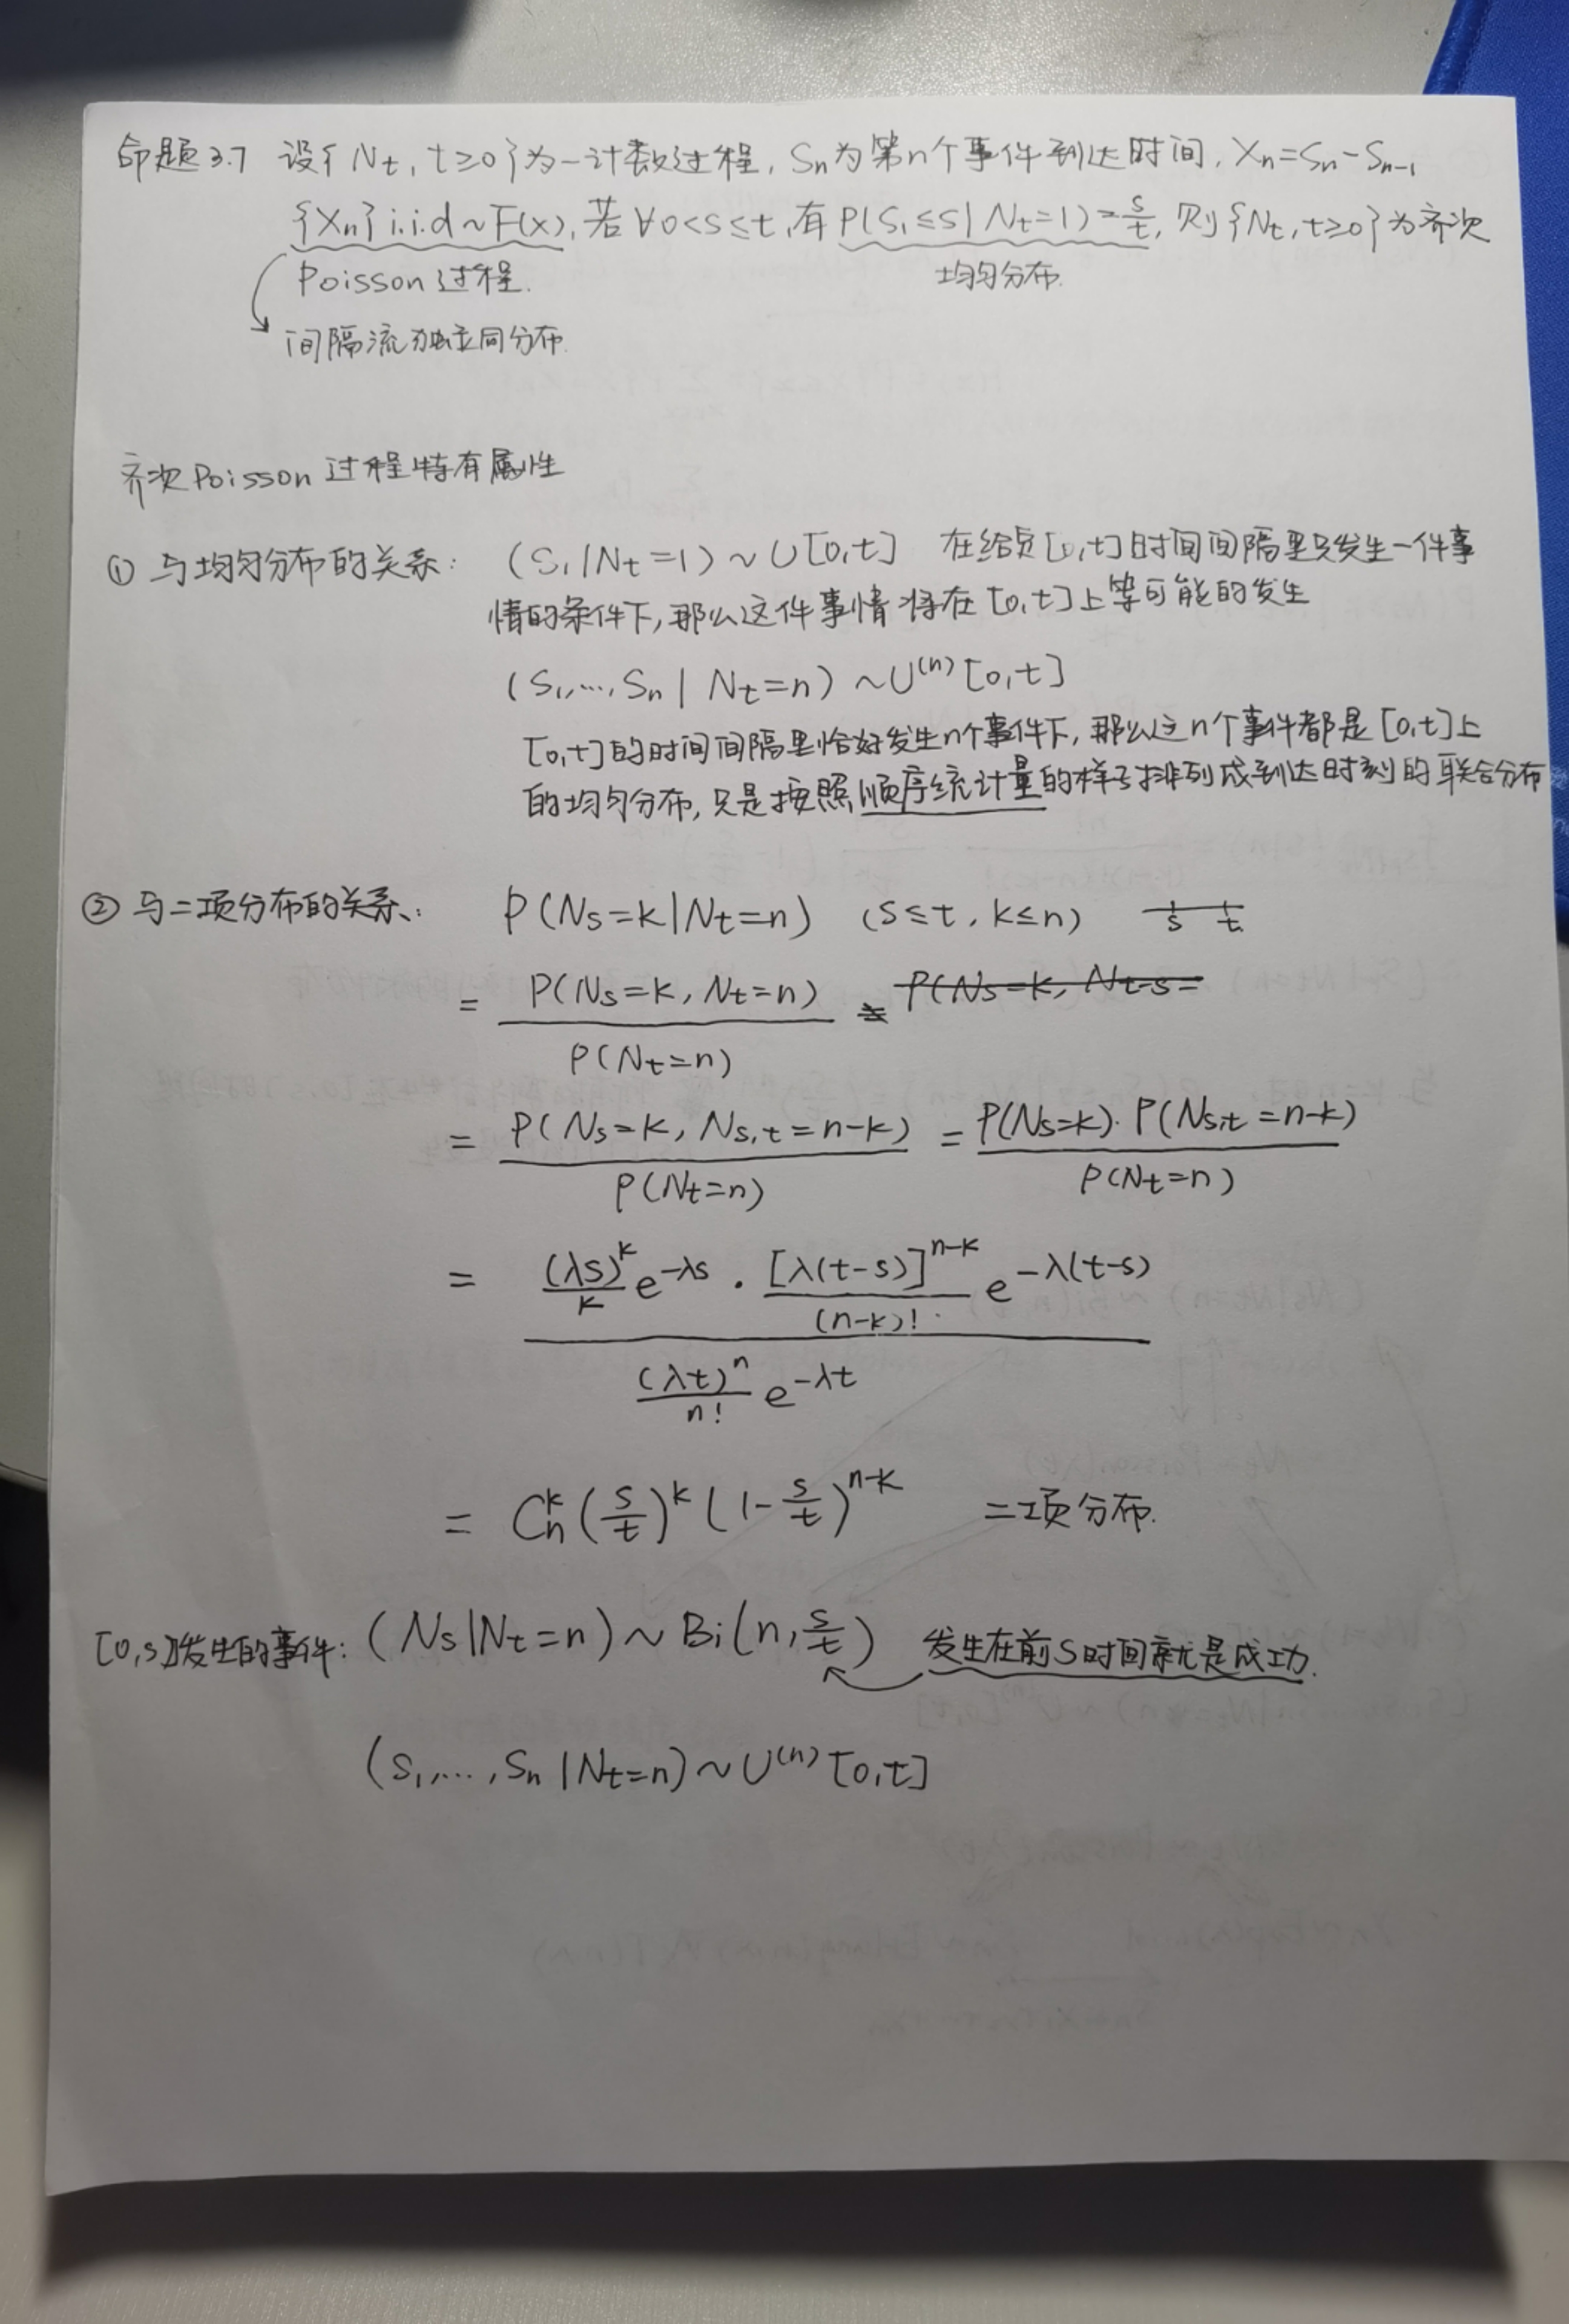 命题3.7 设{Nt, t≥0}为一计数过程, Sn为第n个事件到达时间, Xn=Sn-Sn-1
{Xn} i.i.d ~ F(x), 若∀0<s≤t, 有P(S₁≤s | Nt=1)=s/t, 则{Nt, t≥0}为齐次
Poisson过程.
均匀分布.
间隔流独立同分布.
齐次Poisson过程特有属性
① 与均匀分布的关系: (S₁|Nt=1)~U[0,t] 在给定[0,t]时间间隔里只发生一件事
情的条件下, 那么这件事情将在[0,t]上等可能的发生
(S₁,…,Sn | Nt=n)~U⁽ⁿ⁾[0,t]
[0,t]的时间间隔里恰好发生n个事件下, 那么这n个事件都是[0,t]上
的均匀分布, 只是按照顺序统计量的样子排列成到达时刻的联合分布
② 与二项分布的关系: P(Ns=k|Nt=n) (s≤t, k≤n) s t
= P(Ns=k, Nt=n) / P(Nt=n) = P(Ns=k, Nt-s=
= P(Ns=k, Ns,t=n-k) / P(Nt=n) = P(Ns=k)·P(Ns,t=n-k) / P(Nt=n)
= (λs)^k/k e^-λs · [λ(t-s)]^n-k/(n-k)! e^-λ(t-s) / (λt)^n/n! e^-λt
= C_n^k (s/t)^k (1-s/t)^n-k 二项分布.
[0,s]发生的事件: (Ns|Nt=n)~Bi(n, s/t) 发生在前s时间就是成功.
(S₁,…,Sn|Nt=n)~U⁽ⁿ⁾[0,t]